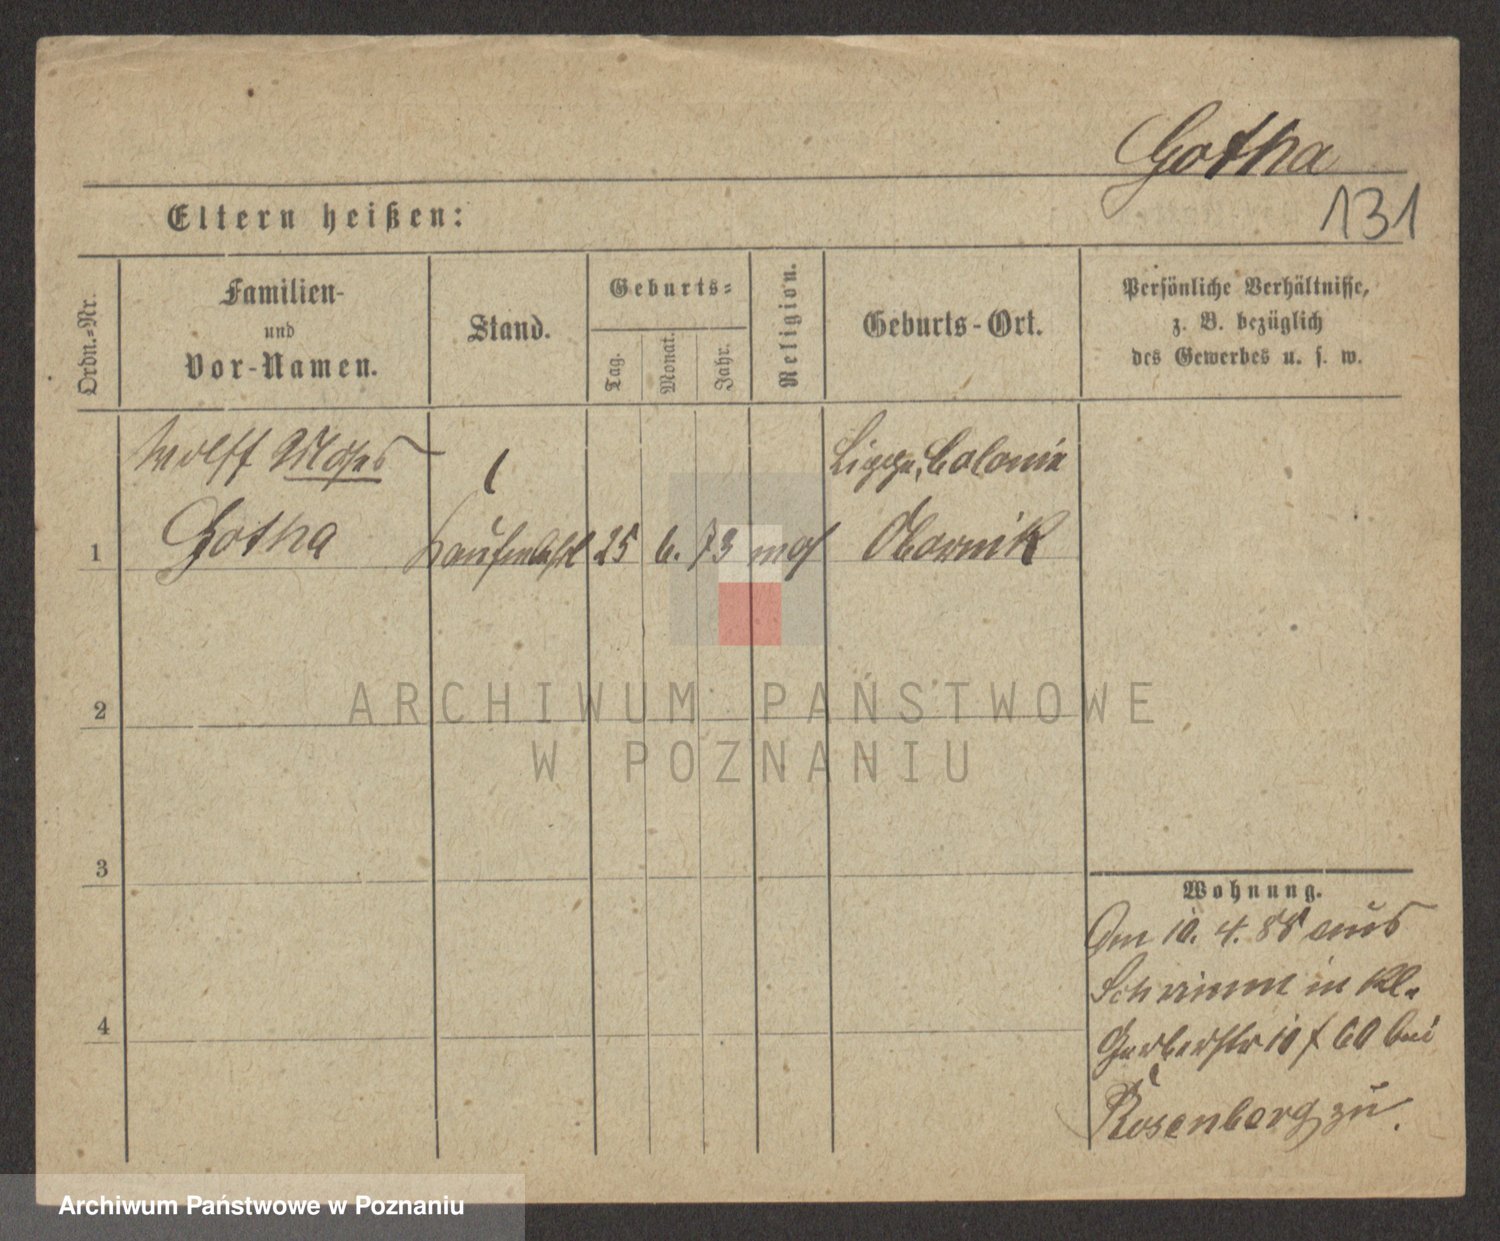 Gotha
131
Eltern heißen:
Ordn.-Nr.
Familien-
und
Vor-Namen.
Stand.
Geburts-
Tag.
Monat.
Jahr.
Religion.
Geburts-Ort.
Persönliche Verhältnisse,
z. B. bezüglich
des Gewerbes u. s. w.
Wolff Moses
Colonie
1 Gotha 25 6. 73 mos Obornik
2
3
4
Wohnung.
Am 10. 4. 88 aus
Schrimm in Kl.
Gerberstr 10 bei
Rosenberg zu.
ARCHIWUM PAŃSTWOWE
W POZNANIU
Archiwum Państwowe w Poznaniu